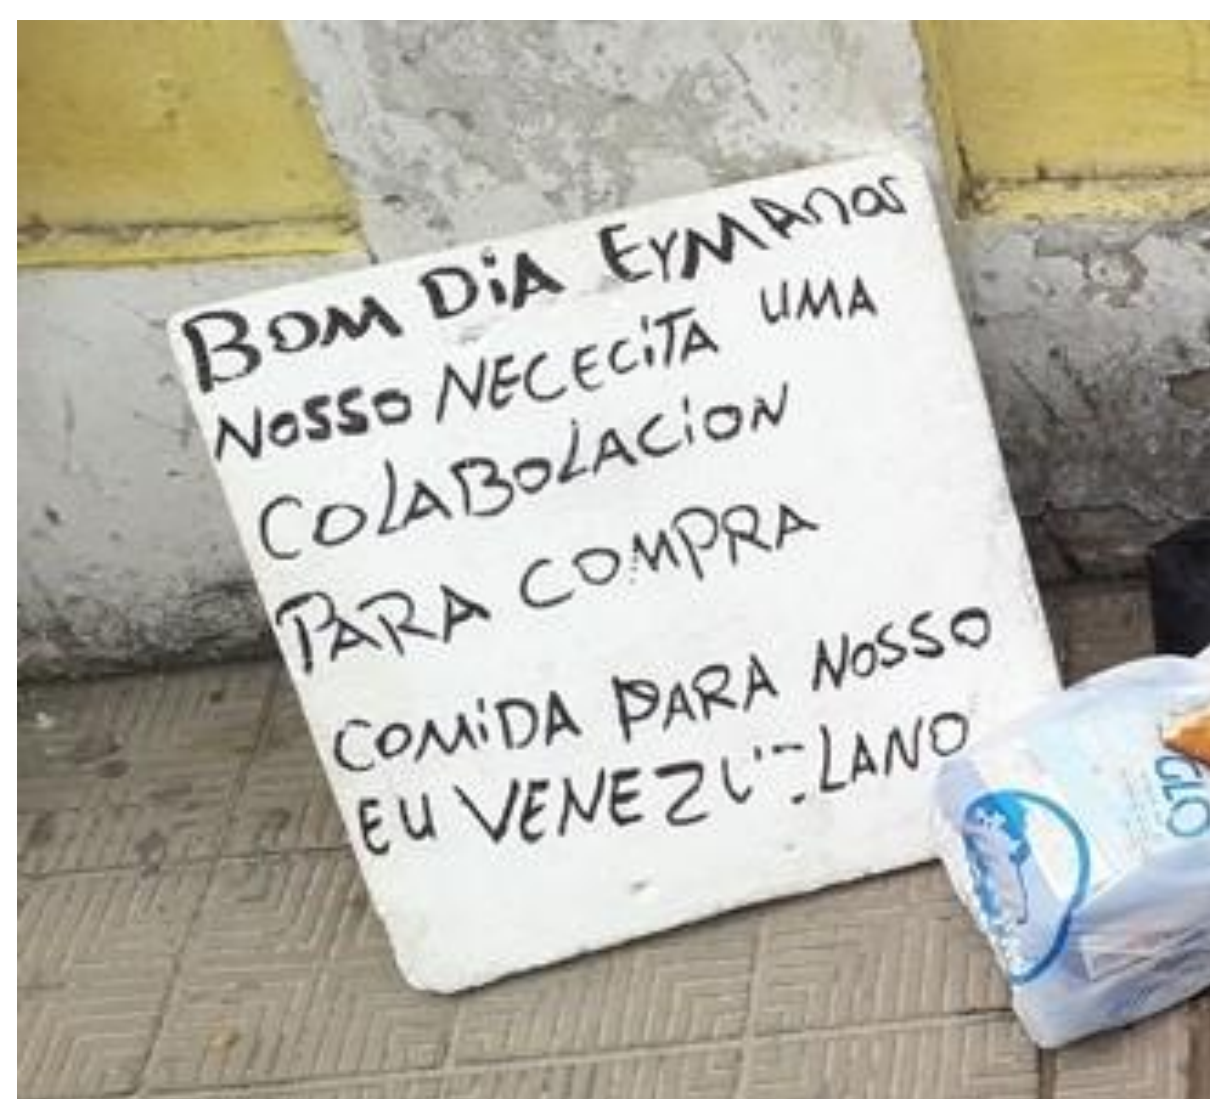 BOM DiA EYMAnos
NOSSO NECECiTA UMA
COLABOLACiON
PARA COMPRA
COMiDA PARA NOSSO
EU VENEZUELANO
GLO